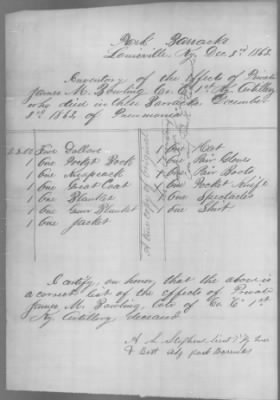 Park Barracks
Louisville Ky. Dec. 8th 1862
Inventory of the effects of Private
James M. Bowling Co. C. 1st Ky. Artillery
who died in these Barracks December
8th 1862 of Pneumonia
$5.00 Five Dollars
1 One Pocket Book
1 One Knapsack
1 One Great Coat
1 One Blanket
1 One Gum Blanket
1 One Jacket
A true copy of original
1 One Hat
1 One Pair Gloves
1 One Pair Boots
1 One Pocket Knife
1 One Spectacles
1 One Shirt
I certify, on honor, that the above is
a correct list of the effects of Private
James M. Bowling late of Co. C. 1st
Ky Artillery deceased
A. S. Stephens Lieut
& Adj Park Barracks